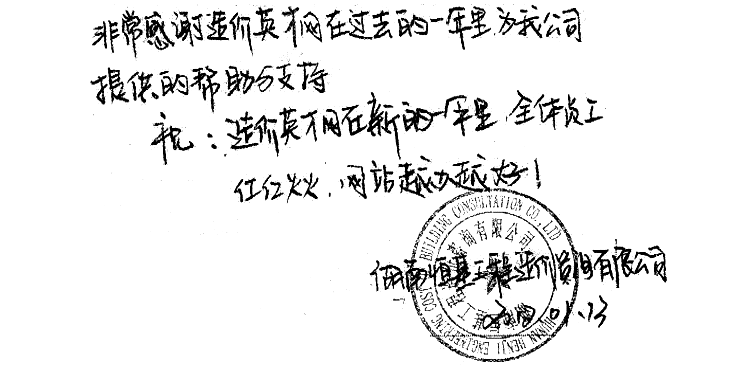 非常感谢造价英才网在过去的一年里为我公司
提供的帮助与支持
祝：造价英才网在新的一年里 全体员工
红红火火，网站越办越好！
湖南恒基工程造价咨询有限公司
01.13
HUNAN HENJI ENGINEERING COST BUILDING CONSULTATION CO., LTD